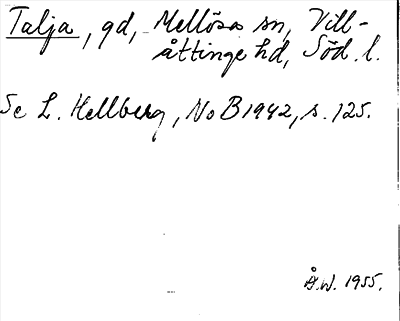 Talja, gd, Mellösa sn, Vill-
åttinge hd, Söd. l.
Se L. Hellberg, NoB 1942, s. 125.
Å.W. 1955.